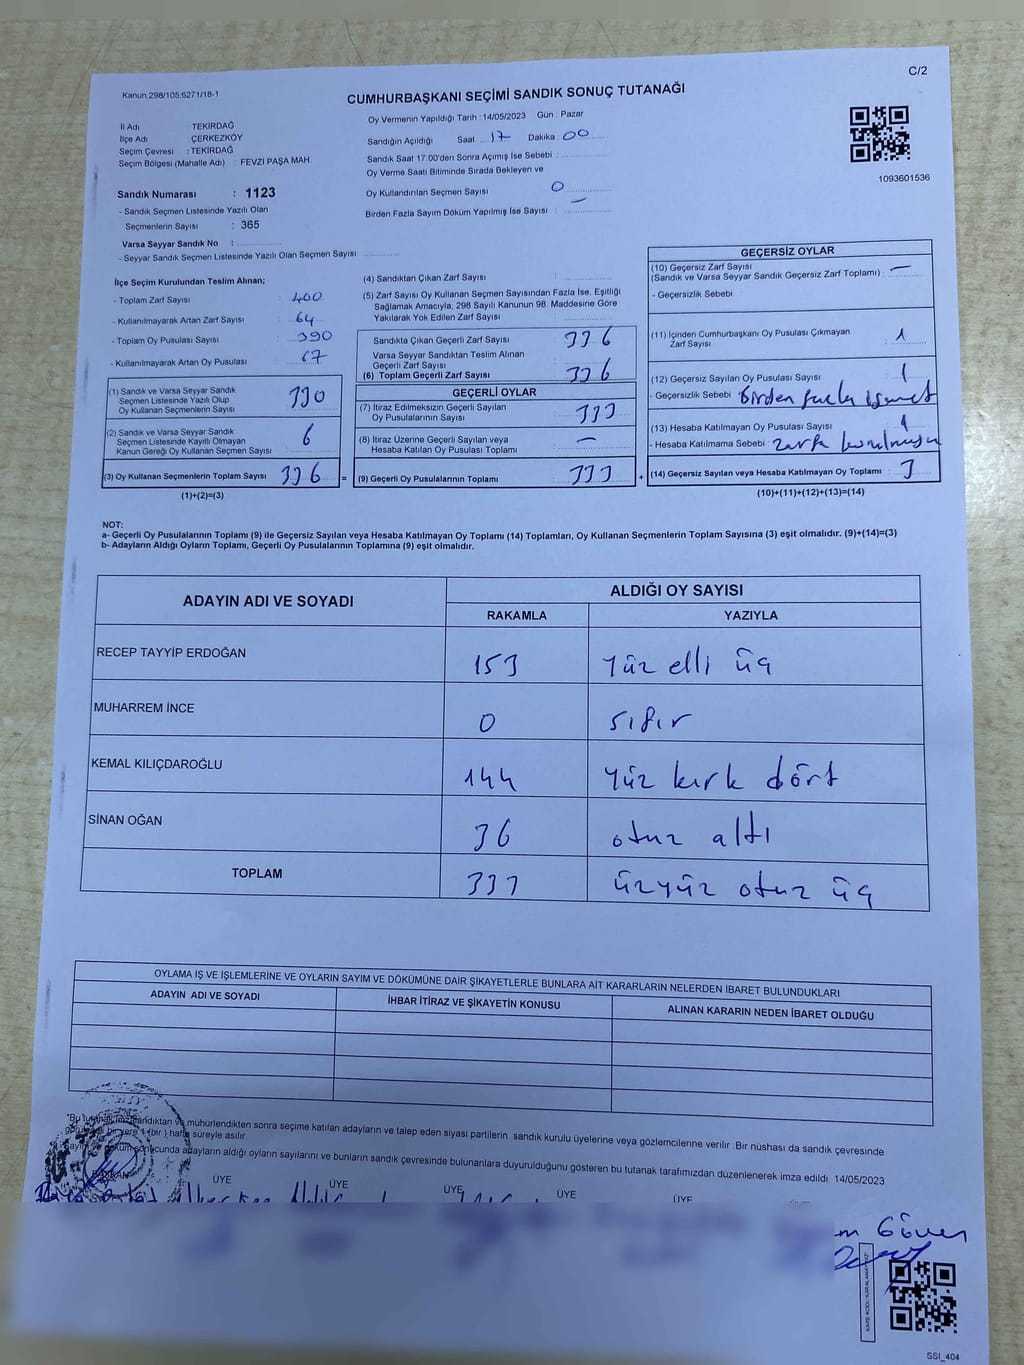 C/2
Kanun 298/105,6271/18-1
CUMHURBAŞKANI SEÇİMİ SANDIK SONUÇ TUTANAĞI
İl Adı : TEKİRDAĞ
İlçe Adı : ÇERKEZKÖY
Seçim Çevresi : TEKİRDAĞ
Seçim Bölgesi (Mahalle Adı) : FEVZI PAŞA MAH
Sandık Numarası : 1123
- Sandık Seçmen Listesinde Yazılı Olan
Seçmenlerin Sayısı : 365
Varsa Seyyar Sandık No :
- Seyyar Sandık Seçmen Listesinde Yazılı Olan Seçmen Sayısı :
Oy Vermenin Yapıldığı Tarih : 14/05/2023 Gün : Pazar
Sandığın Açıldığı Saat 17 Dakika : 00
Sandık Saat 17:00'den Sonra Açımış İse Sebebi :
Oy Verme Saati Bitiminde Sırada Bekleyen ve
Oy Kullandırılan Seçmen Sayısı 0
Birden Fazla Sayım Döküm Yapılmış İse Sayısı : —
1093601536
İlçe Seçim Kurulundan Teslim Alınan;
- Toplam Zarf Sayısı : 400
- Kullanılmayarak Artan Zarf Sayısı : 64
- Toplam Oy Pusulası Sayısı : 390
- Kullanılmayarak Artan Oy Pusulası : 67
(1) Sandık ve Varsa Seyyar Sandık
Seçmen Listesinde Yazılı Olup
Oy Kullanan Seçmenlerin Sayısı 330
(2) Sandık ve Varsa Seyyar Sandık
Seçmen Listesinde Kayıtlı Olmayan
Kanun Gereği Oy Kullanan Seçmen Sayısı 6
(3) Oy Kullanan Seçmenlerin Toplam Sayısı 336 =
(1)+(2)=(3)
(4) Sandıktan Çıkan Zarf Sayısı :
(5) Zarf Sayısı Oy Kullanan Seçmen Sayısından Fazla İse, Eşitliği
Sağlamak Amacıyla, 298 Sayılı Kanunun 98. Maddesine Göre
Yakılarak Yok Edilen Zarf Sayısı :
Sandıkta Çıkan Geçerli Zarf Sayısı 336
Varsa Seyyar Sandıktan Teslim Alınan
Geçerli Zarf Sayısı
(6) Toplam Geçerli Zarf Sayısı 336
GEÇERLİ OYLAR
(7) İtiraz Edilmeksizin Geçerli Sayılan
Oy Pusulalarının Sayısı 333
(8) İtiraz Üzerine Geçerli Sayılan veya
Hesaba Katılan Oy Pusulası Toplamı —
(9) Geçerli Oy Pusulalarının Toplamı 333 +
GEÇERSİZ OYLAR
(10) Geçersiz Zarf Sayısı
(Sandık ve Varsa Seyyar Sandık Geçersiz Zarf Toplamı) : —
- Geçersizlik Sebebi
(11) İçinden Cumhurbaşkanı Oy Pusulası Çıkmayan
Zarf Sayısı : 1
(12) Geçersiz Sayılan Oy Pusulası Sayısı : 1
- Geçersizlik Sebebi Birden fazla işaret
(13) Hesaba Katılmayan Oy Pusulası Sayısı : 1
- Hesaba Katılmama Sebebi : zarfa
(14) Geçersiz Sayılan veya Hesaba Katılmayan Oy Toplamı : 3
(10)+(11)+(12)+(13)=(14)
NOT:
a- Geçerli Oy Pusulalarının Toplamı (9) ile Geçersiz Sayılan veya Hesaba Katılmayan Oy Toplamı (14) Toplamları, Oy Kullanan Seçmenlerin Toplam Sayısına (3) eşit olmalıdır. (9)+(14)=(3)
b- Adayların Aldığı Oyların Toplamı, Geçerli Oy Pusulalarının Toplamına (9) eşit olmalıdır.
ADAYIN ADI VE SOYADI
ALDIĞI OY SAYISI
RAKAMLA YAZIYLA
RECEP TAYYİP ERDOĞAN 153 Yüz elli üç
MUHARREM İNCE 0 sıfır
KEMAL KILIÇDAROĞLU 144 Yüz kırk dört
SİNAN OĞAN 36 otuz altı
TOPLAM 333 üzyüz otuz üç
OYLAMA İŞ VE İŞLEMLERİNE VE OYLARIN SAYIM VE DÖKÜMÜNE DAİR ŞİKAYETLERLE BUNLARA AİT KARARLARIN NELERDEN İBARET BULUNDUKLARI
ADAYIN ADI VE SOYADI İHBAR İTİRAZ VE ŞİKAYETİN KONUSU ALINAN KARARIN NEDEN İBARET OLDUĞU
"Bu tutanak sandıktan ve mühürlendikten sonra seçime katılan adayların ve talep eden siyasi partilerin sandık kurulu üyelerine veya gözlemcilerine verilir. Bir nüshası da sandık çevresinde
bir yere 1 (bir) hafta süreyle asılır.
Sayım ve döküm sonucunda adayların aldığı oyların sayılarını ve bunların sandık çevresinde bulunanlara duyurulduğunu gösteren bu tutanak tarafımızdan düzenlenerek imza edildi. 14/05/2023
BAŞKAN ÜYE ÜYE ÜYE ÜYE ÜYE
Güven
SSI_404